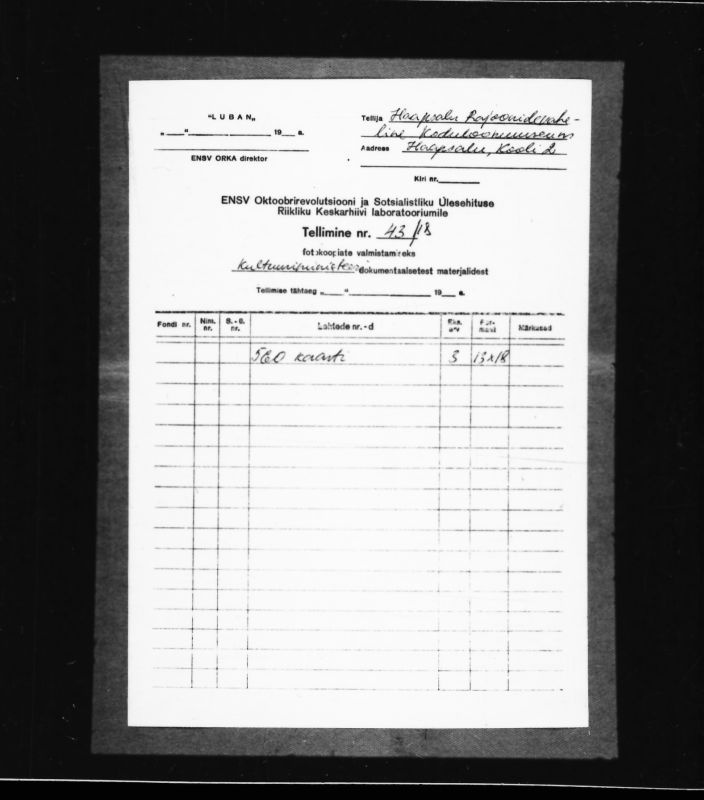 "LUBAN„
„ “ 19 a.
ENSV ORKA direktor
Tellija Haapsalu Rajoonidevahe-
line Koduloomuuseum
Aadress Haapsalu, Kooli 2
Kiri nr.
ENSV Oktoobrirevolutsiooni ja Sotsialistliku Ülesehituse
Riikliku Keskarhiivi laboratooriumile
Tellimine nr. 43/18
fotokoopiate valmistamireks
Kultuuriministeeri dokumentaalsetest materjalidest
Tellimise tähtaeg „ “ 19 a.
Fondi nr. Nim. nr. S.-ü. nr. Lehtede nr.-d Eks. arv For- maat Märkused
560 kaarti 3 13x18